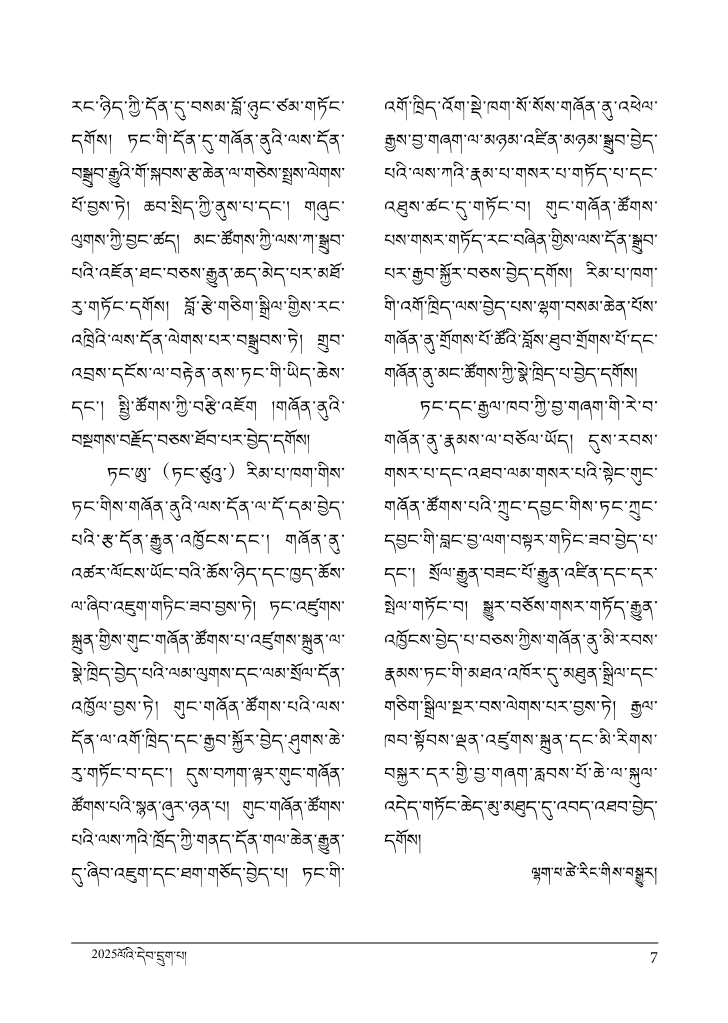 རང་ཉིད་ཀྱི་དོན་དུ་བསམ་བློ་ཉུང་ཙམ་གཏོང་
དགོས། ཏང་གི་དོན་དུ་གཞོན་ནུའི་ལས་དོན་
བསྒྲུབ་རྒྱུའི་གོ་སྐབས་རྩ་ཆེན་ལ་གཅེས་སྤྲས་ལེགས་
པོ་བྱས་ཏེ། ཆབ་སྲིད་ཀྱི་ནུས་པ་དང་། གཞུང་
ལུགས་ཀྱི་བྱང་ཚད། མང་ཚོགས་ཀྱི་ལས་ཀ་སྒྲུབ་
པའི་འཇོན་ཐང་བཅས་རྒྱུན་ཆད་མེད་པར་མཐོ་
རུ་གཏོང་དགོས། བློ་རྩེ་གཅིག་སྒྲིལ་གྱིས་རང་
འཁྲིའི་ལས་དོན་ལེགས་པར་བསྒྲུབས་ཏེ། གྲུབ་
འབྲས་དངོས་ལ་བརྟེན་ནས་ཏང་གི་ཡིད་ཆེས་
དང་། སྤྱི་ཚོགས་ཀྱི་བརྩི་འཇོག །གཞོན་ནུའི་
བསྔགས་བརྗོད་བཅས་ཐོབ་པར་བྱེད་དགོས།
ཏང་ཨུ་ (ཏང་ཙུའུ་) རིམ་པ་ཁག་གིས་
ཏང་གིས་གཞོན་ནུའི་ལས་དོན་ལ་དོ་དམ་བྱེད་
པའི་རྩ་དོན་རྒྱུན་འཁྱོངས་དང་། གཞོན་ནུ་
འཚར་ལོངས་ཡོང་བའི་ཆོས་ཉིད་དང་ཁྱད་ཆོས་
ལ་ཞིབ་འཇུག་གཏིང་ཟབ་བྱས་ཏེ། ཏང་འཛུགས་
སྐྲུན་གྱིས་གུང་གཞོན་ཚོགས་པ་འཛུགས་སྐྲུན་ལ་
སྣེ་ཁྲིད་བྱེད་པའི་ལམ་ལུགས་དང་ལམ་སྲོལ་དོན་
འཁྱོལ་བྱས་ཏེ། གུང་གཞོན་ཚོགས་པའི་ལས་
དོན་ལ་འགོ་ཁྲིད་དང་རྒྱབ་སྐྱོར་བྱེད་ཤུགས་ཆེ་
རུ་གཏོང་བ་དང་། དུས་བཀག་ལྟར་གུང་གཞོན་
ཚོགས་པའི་སྙན་ཞུར་ཉན་པ། གུང་གཞོན་ཚོགས་
པའི་ལས་ཀའི་ཁྲོད་ཀྱི་གནད་དོན་གལ་ཆེན་རྒྱུན་
དུ་ཞིབ་འཇུག་དང་ཐག་གཅོད་བྱེད་པ། ཏང་གི་
འགོ་ཁྲིད་འོག་སྡེ་ཁག་སོ་སོས་གཞོན་ནུ་འཕེལ་
རྒྱས་བྱ་གཞག་ལ་མཉམ་འཛིན་མཉམ་སྒྲུབ་བྱེད་
པའི་ལས་ཀའི་རྣམ་པ་གསར་པ་གཏོད་པ་དང་
འཐུས་ཚང་དུ་གཏོང་བ། གུང་གཞོན་ཚོགས་
པས་གསར་གཏོད་རང་བཞིན་གྱིས་ལས་དོན་སྒྲུབ་
པར་རྒྱབ་སྐྱོར་བཅས་བྱེད་དགོས། རིམ་པ་ཁག་
གི་འགོ་ཁྲིད་ལས་བྱེད་པས་ལྷག་བསམ་ཆེན་པོས་
གཞོན་ནུ་གྲོགས་པོ་ཚོའི་བློས་ཐུབ་གྲོགས་པོ་དང་
གཞོན་ནུ་མང་ཚོགས་ཀྱི་སྣེ་ཁྲིད་པ་བྱེད་དགོས།
ཏང་དང་རྒྱལ་ཁབ་ཀྱི་བྱ་གཞག་གི་རེ་བ་
གཞོན་ནུ་རྣམས་ལ་བཅོལ་ཡོད། དུས་རབས་
གསར་པ་དང་འཐབ་ལམ་གསར་པའི་སྟེང་གུང་
གཞོན་ཚོགས་པའི་ཀྲུང་དབྱང་གིས་ཏང་ཀྲུང་
དབྱང་གི་བླང་བྱ་ལག་བསྟར་གཏིང་ཟབ་བྱེད་པ་
དང་། སྲོལ་རྒྱུན་བཟང་པོ་རྒྱུན་འཛིན་དང་དར་
སྤེལ་གཏོང་བ། སྒྱུར་བཅོས་གསར་གཏོད་རྒྱུན་
འཁྱོངས་བྱེད་པ་བཅས་ཀྱིས་གཞོན་ནུ་མི་རབས་
རྣམས་ཏང་གི་མཐའ་འཁོར་དུ་མཐུན་སྒྲིལ་དང་
གཅིག་སྒྲིལ་སྔར་བས་ལེགས་པར་བྱས་ཏེ། རྒྱལ་
ཁབ་སྟོབས་ལྡན་འཛུགས་སྐྲུན་དང་མི་རིགས་
བསྐྱར་དར་གྱི་བྱ་གཞག་རླབས་པོ་ཆེ་ལ་སྐུལ་
འདེད་གཏོང་ཆེད་མུ་མཐུད་དུ་འབད་འཐབ་བྱེད་
དགོས།
ལྷག་པ་ཚེ་རིང་གིས་བསྒྱུར།
2025ལོའི་དེབ་དྲུག་པ།
7